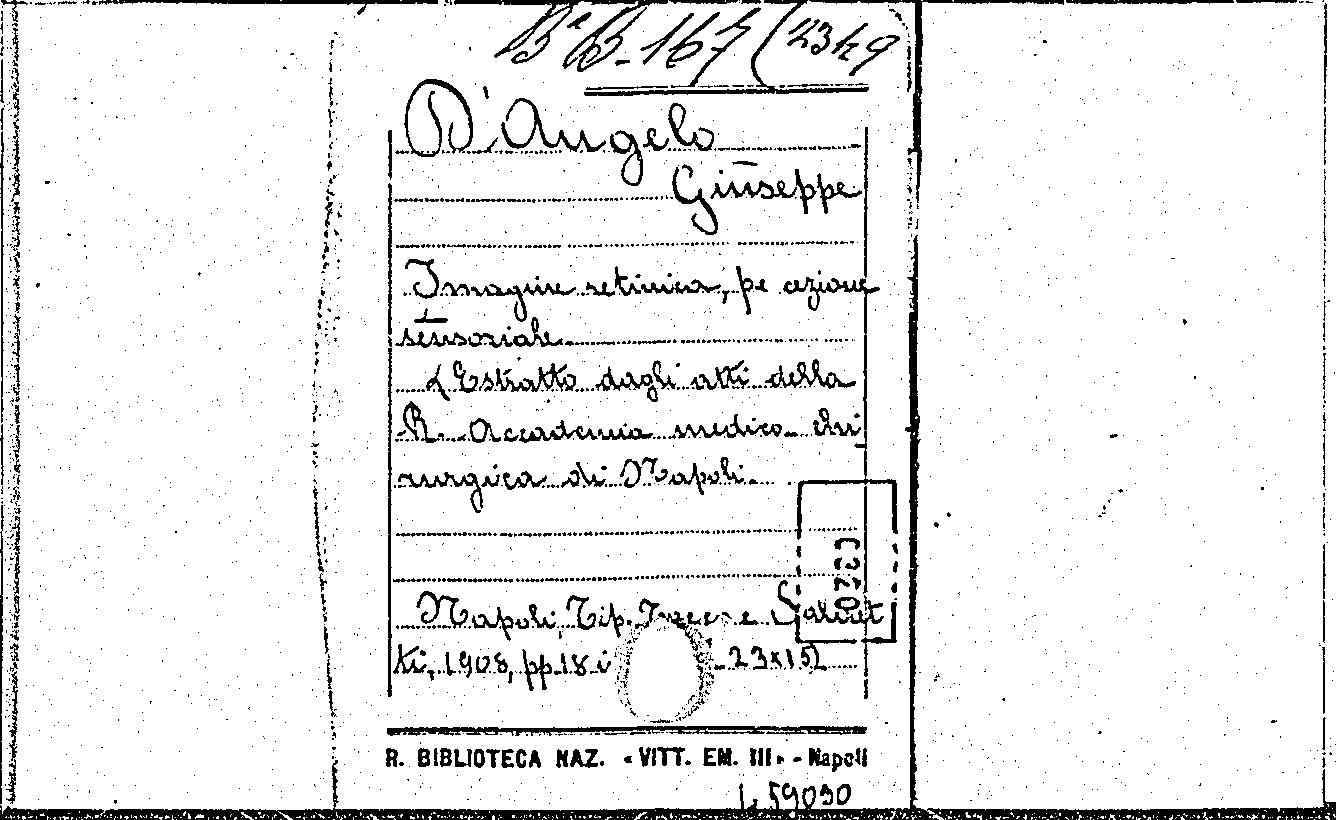 Bª B. 167 (2349
D'Angelo
Giuseppe
Imagine retinica, pe cezione
sensoriale.
Estratto dagli atti della
R. Accademia medico chi
rurgica di Napoli.
Napoli, Tip. Tocco e Salviet
ti, 1908, pp. 18 i 23x15)
R. BIBLIOTECA NAZ. « VITT. EM. III » - Napoli
59090